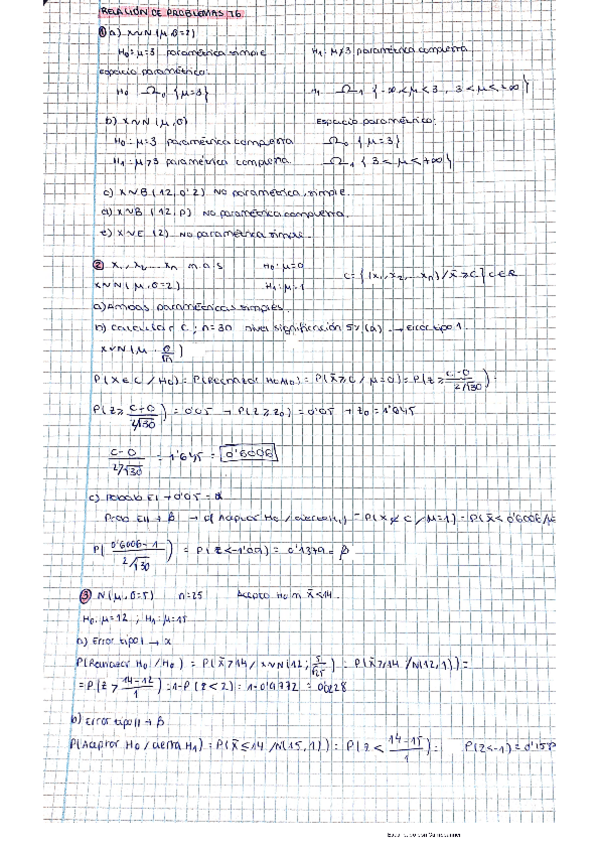 RELACIÓN DE PROBLEMAS T6
① a) X~N(μ, σ=2)
H₀: μ=3 paramétrica simple H₁: μ≠3 paramétrica compuesta
Espacio paramétrico:
H₀ Ω₀ {μ=3} H₁ Ω₁ {-∞<μ<3, 3<μ<+∞}
b) X~N(μ, σ) Espacio paramétrico:
H₀: μ=3 paramétrica compuesta Ω₀ {μ=3}
H₁: μ>3 paramétrica compuesta Ω₁ {3<μ<+∞}
c) X~B(12, 0'2) No paramétrica, simple.
d) X~B(12, p) No paramétrica compuesta.
e) X~E(2) No paramétrica simple.
② X₁, X₂, ... Xn m.a.s H₀: μ=0 C={(X₁, X₂, ... Xn)/x̄≥C} C∈R
X~N(μ, σ=2) H₁: μ=1
a) Ambas paramétricas simples.
b) Calcular C; n=30 nivel significación 5% (α) → error tipo 1.
X~N(μ, σ/√n)
P(X∈C/H₀)=P(Rechazar H₀/H₀)=P(x̄≥C/μ=0)=P(Z≥(C-0)/(2/√30))
P(Z≥(C-0)/(2/√30))=0'05 → P(Z≥Z₀)=0'05 → Z₀=1'645
(C-0)/(2/√30) = 1'645 = 0'6006
c) Probab EI → 0'05 = α
Prob EII → β → P(Aceptar H₀/cierta H₁) = P(X∉C/μ=1) = P(x̄<0'6006/μ
P((0'6006-1)/(2/√30)) = P(Z<-1'09) = 0'1379 = β
③ N(μ, σ=5) n=25 Acepto H₀ si x̄<14.
H₀: μ=12; H₁: μ=15
a) Error tipo I → α
P(Rechazar H₀/H₀) = P(x̄>14/X~N(12; 5/√25) = P(x̄>14/N(12,1)) =
=P(Z>(14-12)/1) = 1-P(Z<2) = 1-0'9772 = 0'0228
b) Error tipo II → β
P(Aceptar H₀/cierta H₁) = P(x̄≤14/N(15,1)) = P(Z<(14-15)/1) = P(Z<-1)=0'158